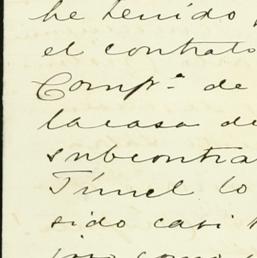 he tenido
el contrato
Comp.ª de
la casa de
subcontra
Túnel lo
sido casi